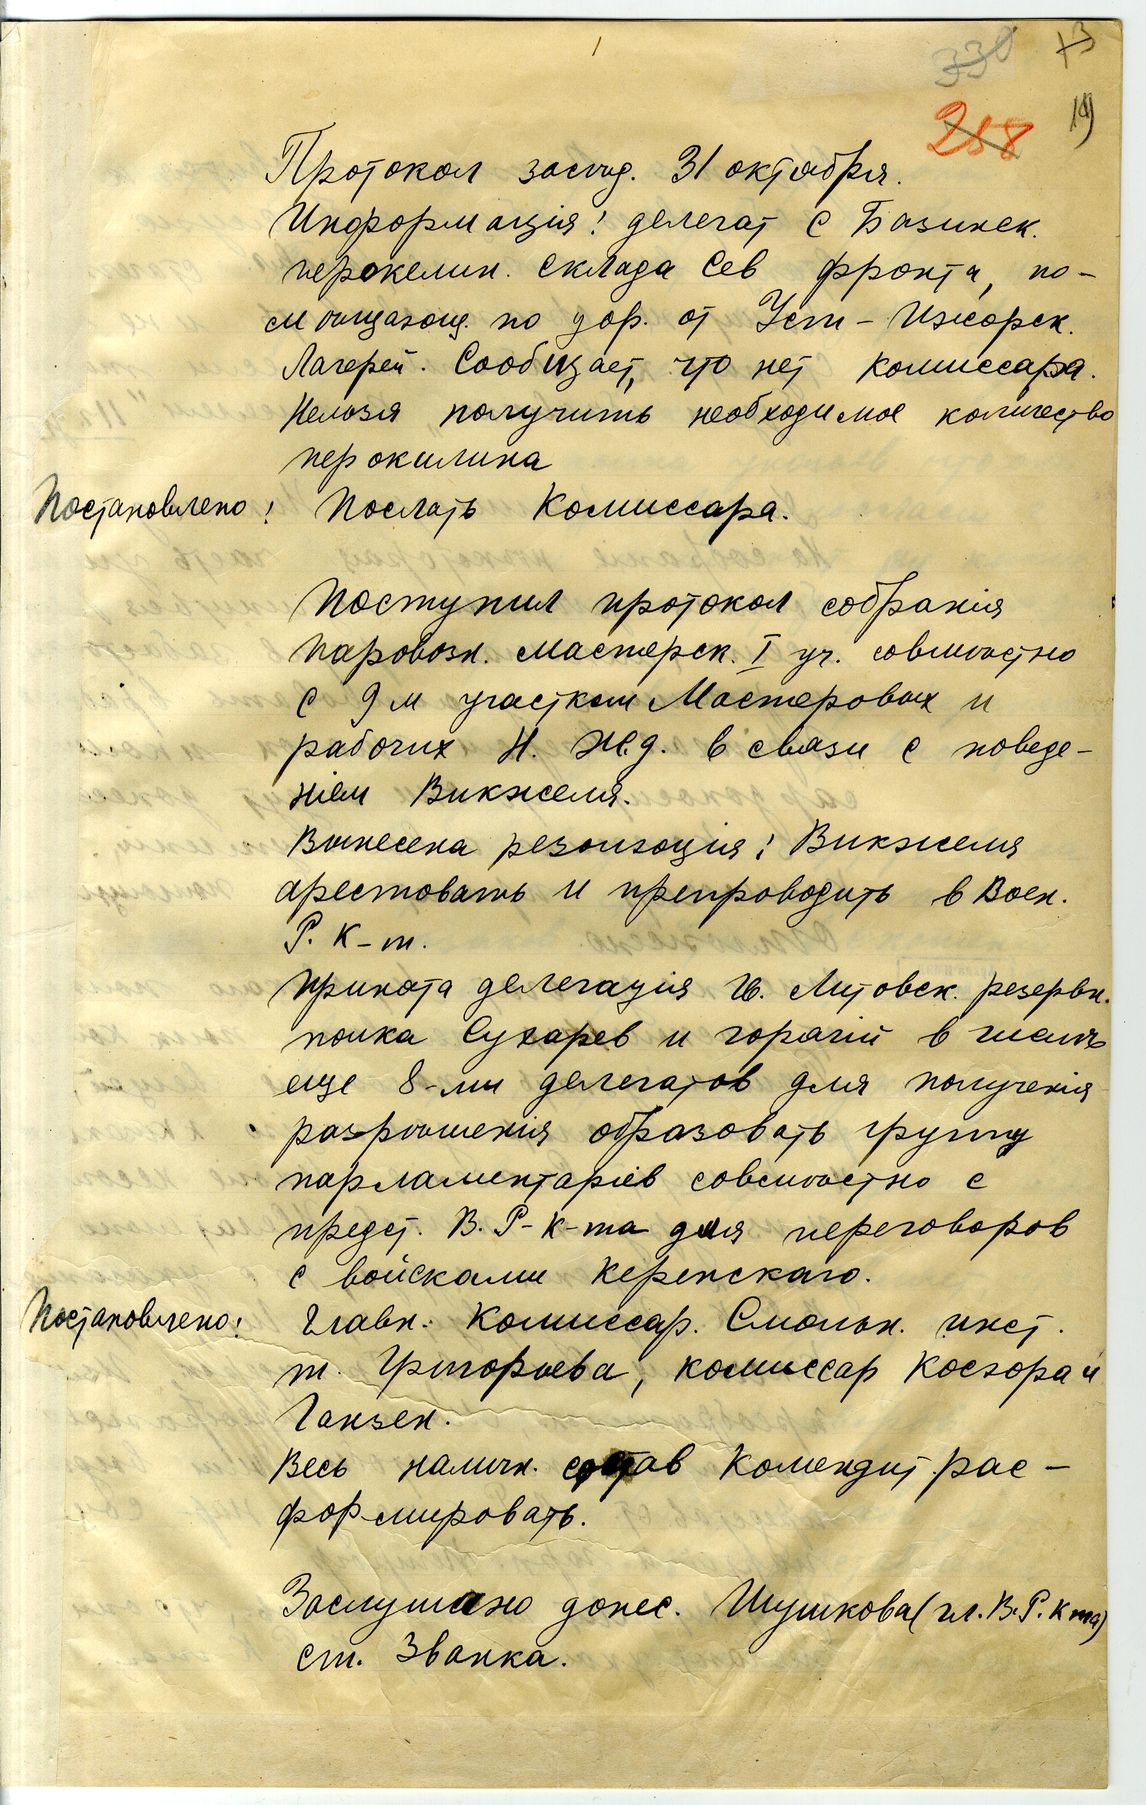 330 73
258 19)
Протокол засѣд. 31 октября.
Информація: делегат с Базинск.
перокелин. склада Сев фронта, по-
мѣщающ. по дор. от Усть-Ижорск.
Лагерей. Сообщает, что нет комиссара.
Нельзя получить необходимое количество
перокилина
Постановлено: Послать Комиссара.
Поступил протокол собранія
паровозн. мастерск. I уч. совмѣстно
с 9м участком Мастеровых и
рабочих Н. Ж.д. в связи с поведе-
ніем Викжеля.
Вынесена резолюція: Викжеля
арестовать и препроводить в Воен.
Р. К-т.
Принята делегація гв. Литовск. резервн.
полка Сухарев и горячій в числѣ
еще 8-ми делегатов для полученія
разрѣшенія образовать группу
парламентаріев совмѣстно с
предст. В. Р-К-та для переговоров
с войсками Керенскаго.
Постановлено: Главн. Комиссар. Смольн. инст.
т. Григорьева, комиссар
Ганзен.
Весь наличн. состав Комендит рас-
формировать.
Заслушано донес. Шушкова (чл. В.Р.Кта)
ст. Званка.